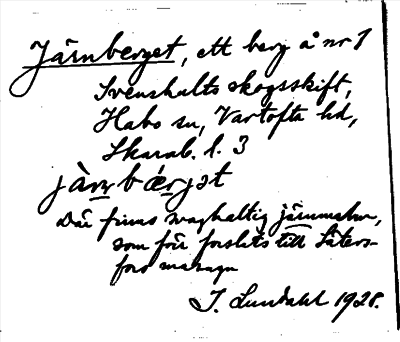 Järnberget, ett berg å nr 1
Svenshults skogsskift,
Habo sn, Vartofta hd,
Skarab. l. 3
jàrnbæ̀rjət
Där finns svaghaltig järnmalm,
som förr forslats till Säters-
fors masugn
J. Lundahl 1928.